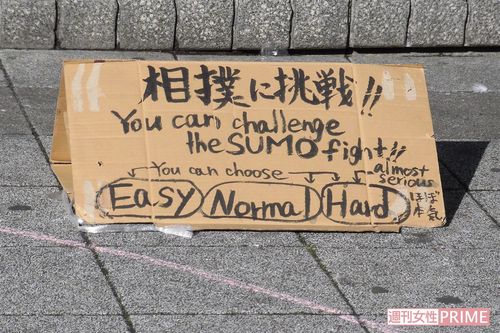 相撲に挑戦!!
You can challenge
the SUMO fight!!
You can choose
almost
serious
Easy Normal Hard
ほぼ
本気
週刊女性PRIME